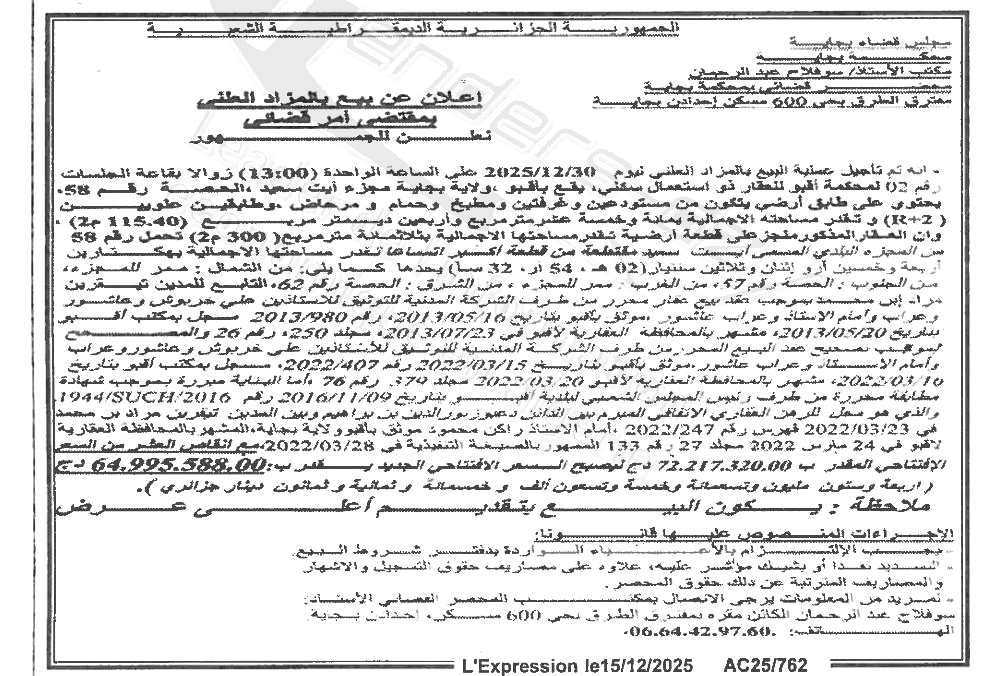 الجمهوريـــة الجزائـريـة الديمقـراطيـة الشعبيـــة
مجلس قضاء بجاية
محكمة بجاية
مكتب الأستاذ/ سوفلاح عبد الرحمان
محضر قضائي بمحكمة بجاية
مفترق الطرق بحي 600 مسكن إحدادن بجاية
إعلان عن بيع بالمزاد العلني
بمقتضى أمر قضائي
نعلن للجمهور
- انه تم تأجيل عملية البيع بالمزاد العلني ليوم 2025/12/30 على الساعة الواحدة (13:00) زوالا بقاعة الجلسات
رقم 02 لمحكمة أقبو للعقار ذو استعمال سكني، يقع بأقبو ،ولاية بجاية مجزء أيت سعيد ،الحصة رقم 58،
يحتوي على طابق أرضي يتكون من مستودعين وغرفتين ومطبخ و حمام و مرحاض .وطابقين علويين
( R+2) و تقدر مساحته الاجمالية بمائة وخمسة عشر مترمربع وأربعين ديسمتر مربع (115.40 م2) ،
وان العقار المذكور منجز على قطعة ارضية تقدر مساحتها الاجمالية بثلاثمائة مترمربع( 300 م2) تحمل رقم 58
من المجزء البلدي المسمى أيت سعيد مقتطعة من قطعة أكبر اتساعا تقدر مساحتها الاجمالية بهكتارين
أربعة وخمسين أر و إثنان وثلاثين سنتيار(02 هـ، 54 ار، 32 سآ) يحدها كما يلي: من الشمال : ممر للمجزء،
من الجنوب : الحصة رقم 57، من الغرب : ممر للمجزء ، من الشرق : الحصة رقم 62، التابع للمدين تيفرين
مراد إبن محمد بموجب عقد بيع عقار محرر من طرف الشركة المدنية للتوثيق للاستاذين علي خربوش وعاشور
وعراب وأمام الاستاذ وعراب عاشور ،موثق بأقبو بتاريخ 2013/05/16، رقم 2013/980 مسجل بمكتب أقبو
بتاريخ 2013/05/20، مشهر بالمحافظة العقارية لأقبو في 2013/07/23، مجلد 250، رقم 26 والمصحح
بموجب تصحيح عقد البيع المحرر من طرف الشركة المدنية للتوثيق للأستاذين علي خربوش وعاشور وعراب
وأمام الاستاذ وعراب عاشور ،موثق بأقبو بتاريخ 2022/03/15 رقم 2022/407، مسجل بمكتب أقبو بتاريخ
2022/03/16، مشهر بالمحافظة العقارية لأقبو 2022/03/20 مجلد 379 رقم 76 ،أما البناية مبررة بموجب شهادة
مطابقة محررة من طرف رئيس المجلس الشعبي لبلدية أقبو بتاريخ 2016/11/09 رقم 1944/SUCH/2016،
والذي هو محل للرهن العقاري الاتفاقي المبرم بين الدائن نورالدين بن براهيم وبين المدين تيفرين مراد بن محمد
في 2022/03/23 فهرس رقم 2022/247 ،أمام الاستاذ راكن محمود موثق بأقبو ولاية بجاية،المشهر بالمحافظة العقارية
لاقبو في 24 مارس 2022 مجلد 27 رقم 133 الممهور بالصيغة التنفيذية في 2022/03/28،مع انقاص العشر من السعر
الإفتتاحي المقدر ب 72.217.320.00 دج ليصبح السعر الافتتاحي الجديد يقدر ب: 64.995.588.00 دج
( اربعة وستون مليون وتسعمائة وخمسة وتسعون ألف و خمسمائة و ثمانية و ثمانون دينار جزائري ).
ملاحظة : يكون البيع بتقديم أعلى عرض
الاجراءات المنصوص عليها قانونا:
- يجب الإلتزام بالأعباء الواردة بدفتر شروط البيع.
- التسديد نقدا أو بشيك مؤشر عليه، علاوه على مصاريف حقوق التسجيل والاشهار
والمصاريف المترتبة عن ذلك حقوق المحضر.
- لمزيد من المعلومات يرجى الاتصال بمكتب المحضر القضائي الأستاذ:
سوفلاح عبد الرحمان الكائن مقره بمفترق الطرق بحي 600 مسكن، إحدادن بجاية
الهاتف: 06.64.42.97.60.
L'Expression le15/12/2025 AC25/762